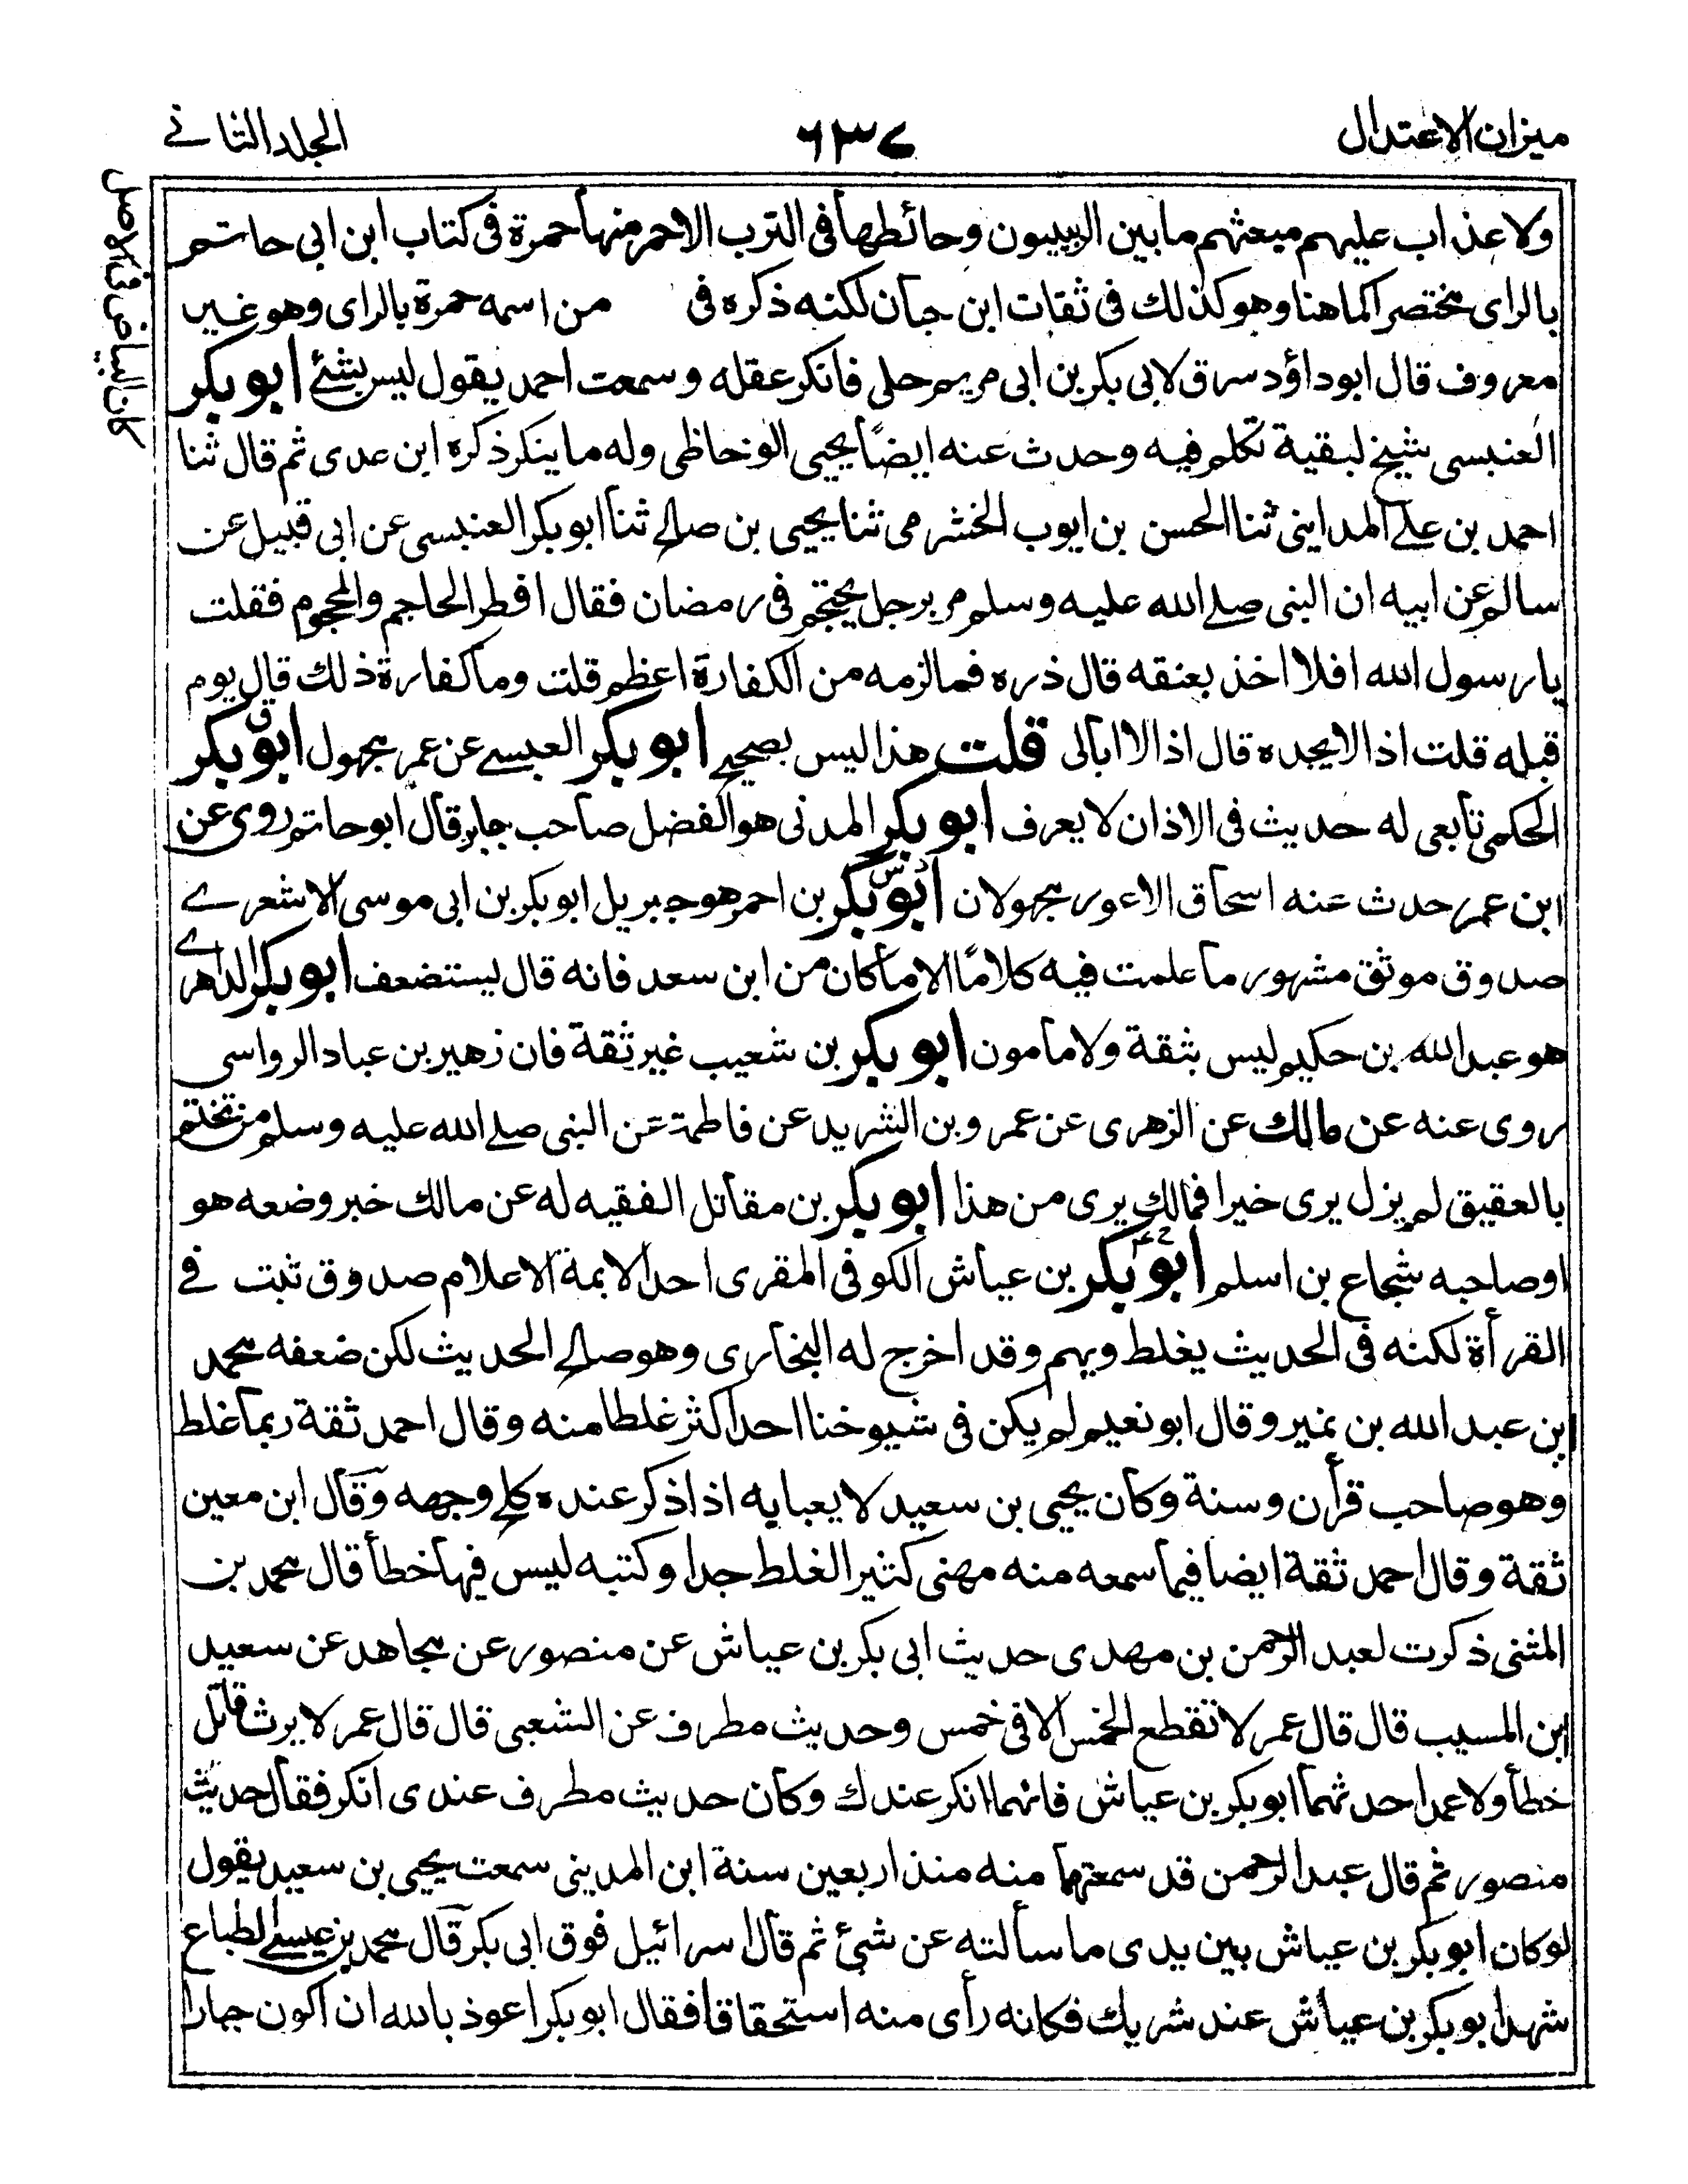 ميزان الاعتدال
٦٣٧
الجلد الثاني
ولا عذاب عليهم مبعثهم ما بين الزيتون وحائطها في الترب الاحمر منها حمرة في كتاب ابن ابي حاتم
بالراي مختصرا كما هنا وهو كذلك في ثقات ابن حبان لكنه ذكره في من اسمه حمرة بالراى وهو غير
معروف قال ابو داؤد سرق لابى بكر بن ابى مريم حلى فانكر عقله وسمعت احمد يقول ليس بشئ ابو بكر
العنبسى شيخ لبقية تكلم فيه وحدث عنه ايضًا يحيى الوحاظى وله ما ينكر ذكره ابن عدى ثم قال ثنا
احمد بن علے المداينى ثنا الحسن بن ايوب الخشرمى ثنا يحيى بن صالح ثنا ابو بكر العنبسى عن ابى قبيل عن
سالم عن ابيه ان النبى صلے الله عليه وسلم مر برجل يحتجم فى رمضان فقال افطر الحاجم والمحجوم فقلت
يا رسول الله افلا اخذ بعنقه قال ذره فما لزمه من الكفارة اعظم قلت وما كفارة ذلك قال يوم
قبله قلت اذا لا يجده قال اذا لا ابالى قلت هذا ليس بصحيح ابو بكر العبسے عن عمر مجهول ابو بكر
الحكمى تابعى له حديث فى الاذان لا يعرف ابو بكر المدنى هو الفضل صاحب جابر قال ابو حاتم روى عن
ابن عمر حدث عنه اسحاق الاعور مجهولان ابو بكر بن احمر هو جبريل ابو بكر بن ابى موسى الاشعرے
صدوق موثق مشهور ما علمت فيه كلامًا الا ما كان من ابن سعد فانه قال يستضعف ابو بكر الداهرے
هو عبد الله بن حكيم ليس بثقة ولا مامون ابو بكر بن شعيب غير ثقة فان زهير بن عباد الرواسى
روى عنه عن مالك عن الزهرى عن عمرو بن الشريد عن فاطمة عن النبى صلے الله عليه وسلم من تختم
بالعقيق لم يزل يرى خيرا فمالك يرى من هذا ابو بكر بن مقاتل الفقيه له عن مالك خبر وضعه هو
او صاحبه شجاع بن اسلم ابو بكر بن عياش الكوفى المقرى احد الايمة الاعلام صدوق ثبت فے
القرأة لكنه فى الحديث يغلط ويهم وقد اخرج له البخارى وهو صالح الحديث لكن ضعفه محمد
بن عبد الله بن نمير وقال ابو نعيم لم يكن فى شيوخنا احد اكثر غلطا منه وقال احمد ثقة ربما غلط
وهو صاحب قرأن وسنة وكان يحيى بن سعيد لا يعبا به اذا ذكر عنده كلح وجهه وقال ابن معين
ثقة وقال احمد ثقة ايضا فيما سمعه منه مهنى كثير الغلط جدا وكتبه ليس فيها خطأ قال محمد بن
المثنى ذكرت لعبد الرحمن بن مهدى حديث ابى بكر بن عياش عن منصور عن مجاهد عن سعيد
ابن المسيب قال قال عمر لا تقطع الخمس الا فى خمس وحديث مطرف عن الشعبى قال قال عمر لا يرث قاتل
خطأ ولا عمدا حدثهما ابو بكر بن عياش فائهما انكر عندك وكان حديث مطرف عندى انكر فقال حديث
منصور ثم قال عبد الرحمن قد سمعتهما منه منذ اربعين سنة ابن المدينى سمعت يحيى بن سعيد يقول
لو كان ابو بكر بن عياش بين يدى ما سألته عن شئ ثم قال اسرائيل فوق ابى بكر قال محمد بن عيسے الطباع
شهد ابو بكر بن عياش عند شريك فكانه رأى منه استحقاقا فقال ابو بكر اعوذ بالله ان اكون جهارا
كان البياض فى الاصل